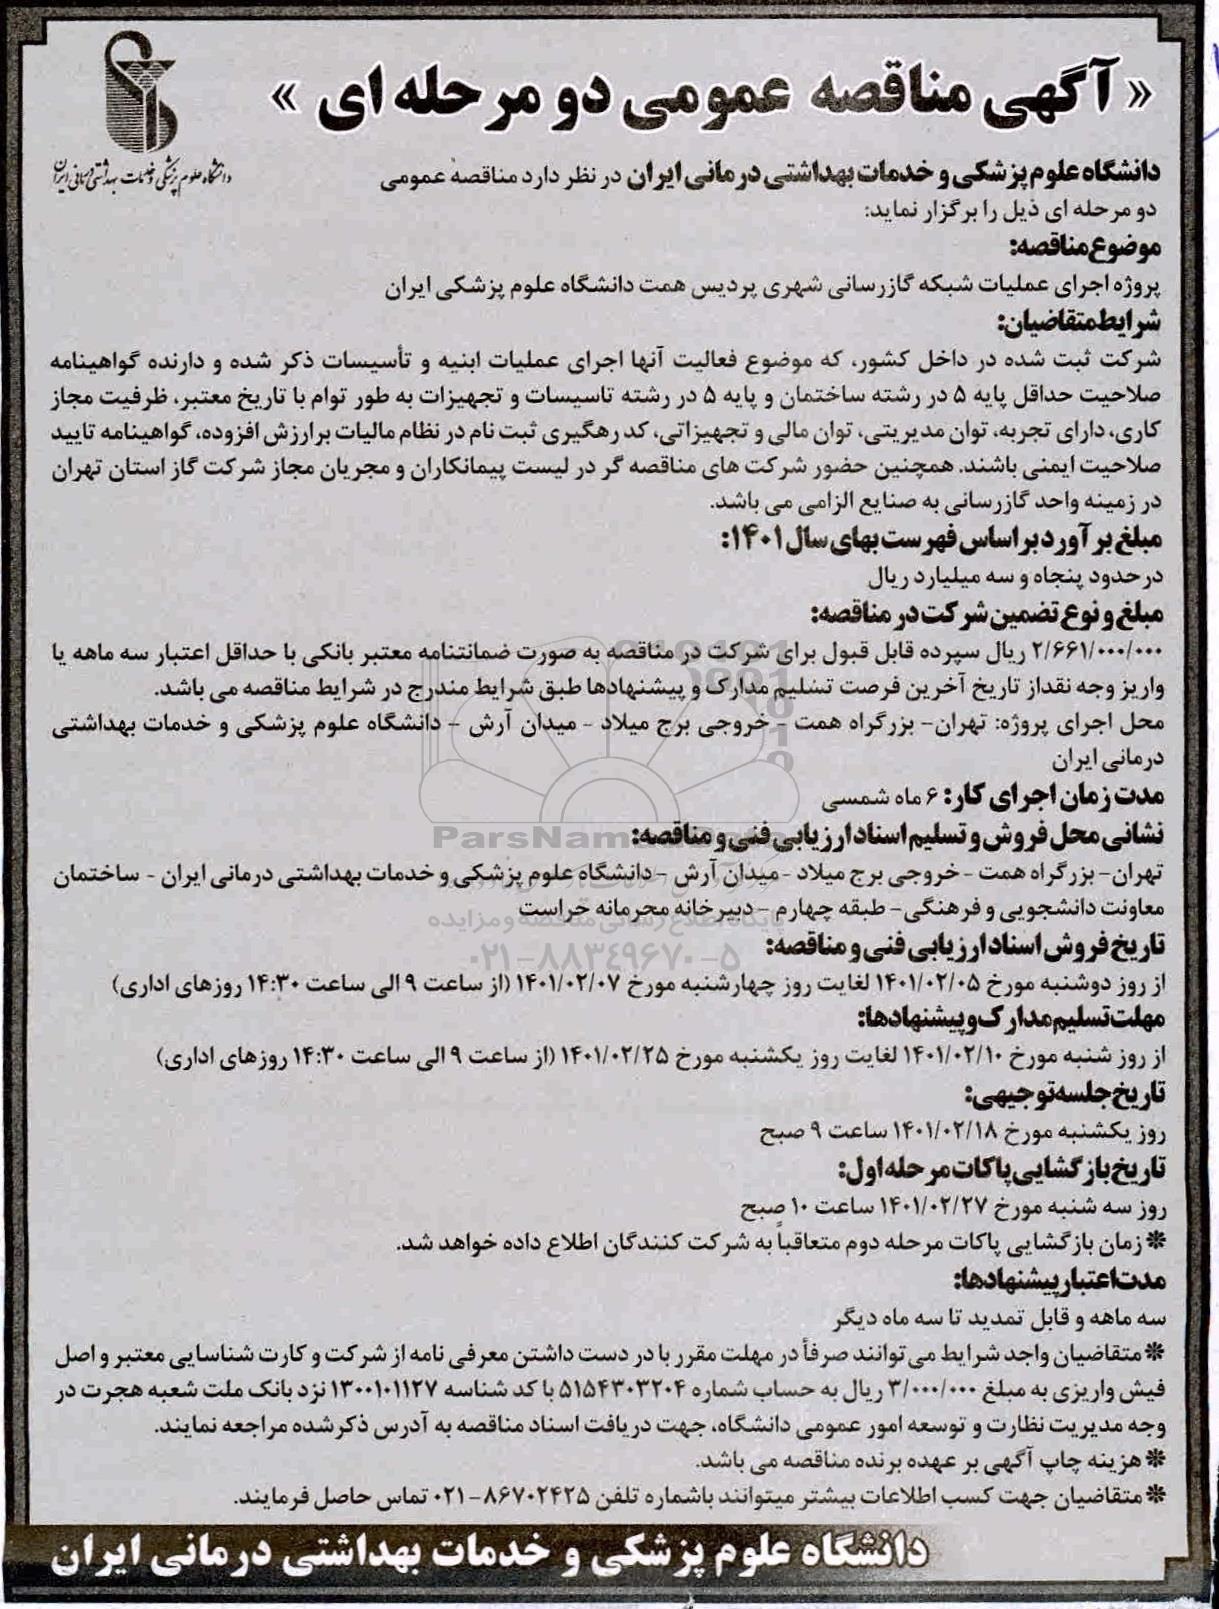 « آگهی مناقصه عمومی دو مرحله ای »
دانشگاه علوم پزشکی و خدمات بهداشتی درمانی ایران
دانشگاه علوم پزشکی و خدمات بهداشتی درمانی ایران در نظر دارد مناقصه عمومی
دو مرحله ای ذیل را برگزار نماید:
موضوع مناقصه:
پروژه اجرای عملیات شبکه گازرسانی شهری پردیس همت دانشگاه علوم پزشکی ایران
شرایط متقاضیان:
شرکت ثبت شده در داخل کشور، که موضوع فعالیت آنها اجرای عملیات ابنیه و تأسیسات ذکر شده و دارنده گواهینامه
صلاحیت حداقل پایه ۵ در رشته ساختمان و پایه ۵ در رشته تاسیسات و تجهیزات به طور توام با تاریخ معتبر، ظرفیت مجاز
کاری، دارای تجربه، توان مدیریتی، توان مالی و تجهیزاتی، کد رهگیری ثبت نام در نظام مالیات برارزش افزوده، گواهینامه تایید
صلاحیت ایمنی باشند. همچنین حضور شرکت های مناقصه گر در لیست پیمانکاران و مجریان مجاز شرکت گاز استان تهران
در زمینه واحد گازرسانی به صنایع الزامی می باشد.
مبلغ برآورد براساس فهرست بهای سال ۱۴۰۱:
درحدود پنجاه و سه میلیارد ریال
مبلغ و نوع تضمین شرکت در مناقصه:
۲/۶۶۱/۰۰۰/۰۰۰ ریال سپرده قابل قبول برای شرکت در مناقصه به صورت ضمانتنامه معتبر بانکی با حداقل اعتبار سه ماهه یا
واریز وجه نقداز تاریخ آخرین فرصت تسلیم مدارک و پیشنهادها طبق شرایط مندرج در شرایط مناقصه می باشد.
محل اجرای پروژه: تهران- بزرگراه همت - خروجی برج میلاد - میدان آرش - دانشگاه علوم پزشکی و خدمات بهداشتی
درمانی ایران
مدت زمان اجرای کار: ۶ ماه شمسی
ParsNamadData
نشانی محل فروش و تسلیم اسناد ارزیابی فنی و مناقصه:
تهران- بزرگراه همت - خروجی برج میلاد - میدان آرش - دانشگاه علوم پزشکی و خدمات بهداشتی درمانی ایران - ساختمان
معاونت دانشجویی و فرهنگی- طبقه چهارم - دبیرخانه محرمانه حراست
پایگاه اطلاع رسانی مناقصه و مزایده
تاریخ فروش اسناد ارزیابی فنی و مناقصه:
۰۲۱-۸۸۳۴۹۶۷۰-۵
از روز دوشنبه مورخ ۱۴۰۱/۰۲/۰۵ لغایت روز چهارشنبه مورخ ۱۴۰۱/۰۲/۰۷ (از ساعت ۹ الی ساعت ۱۴:۳۰ روزهای اداری)
مهلت تسلیم مدارک و پیشنهادها:
از روز شنبه مورخ ۱۴۰۱/۰۲/۱۰ لغایت روز یکشنبه مورخ ۱۴۰۱/۰۲/۲۵ (از ساعت ۹ الی ساعت ۱۴:۳۰ روزهای اداری)
تاریخ جلسه توجیهی:
روز یکشنبه مورخ ۱۴۰۱/۰۲/۱۸ ساعت ۹ صبح
تاریخ بازگشایی پاکات مرحله اول:
روز سه شنبه مورخ ۱۴۰۱/۰۲/۲۷ ساعت ۱۰ صبح
* زمان بازگشایی پاکات مرحله دوم متعاقباً به شرکت کنندگان اطلاع داده خواهد شد.
مدت اعتبار پیشنهادها:
سه ماهه و قابل تمدید تا سه ماه دیگر
* متقاضیان واجد شرایط می توانند صرفاً در مهلت مقرر با در دست داشتن معرفی نامه از شرکت و کارت شناسایی معتبر و اصل
فیش واریزی به مبلغ ۳/۰۰۰/۰۰۰ ریال به حساب شماره ۵۱۵۴۳۰۳۲۰۴ با کد شناسه ۱۳۰۰۱۰۱۱۲۷ نزد بانک ملت شعبه هجرت در
وجه مدیریت نظارت و توسعه امور عمومی دانشگاه، جهت دریافت اسناد مناقصه به آدرس ذکرشده مراجعه نمایند.
* هزینه چاپ آگهی بر عهده برنده مناقصه می باشد.
* متقاضیان جهت کسب اطلاعات بیشتر میتوانند باشماره تلفن ۸۶۷۰۲۴۲۵-۰۲۱ تماس حاصل فرمایند.
دانشگاه علوم پزشکی و خدمات بهداشتی درمانی ایران